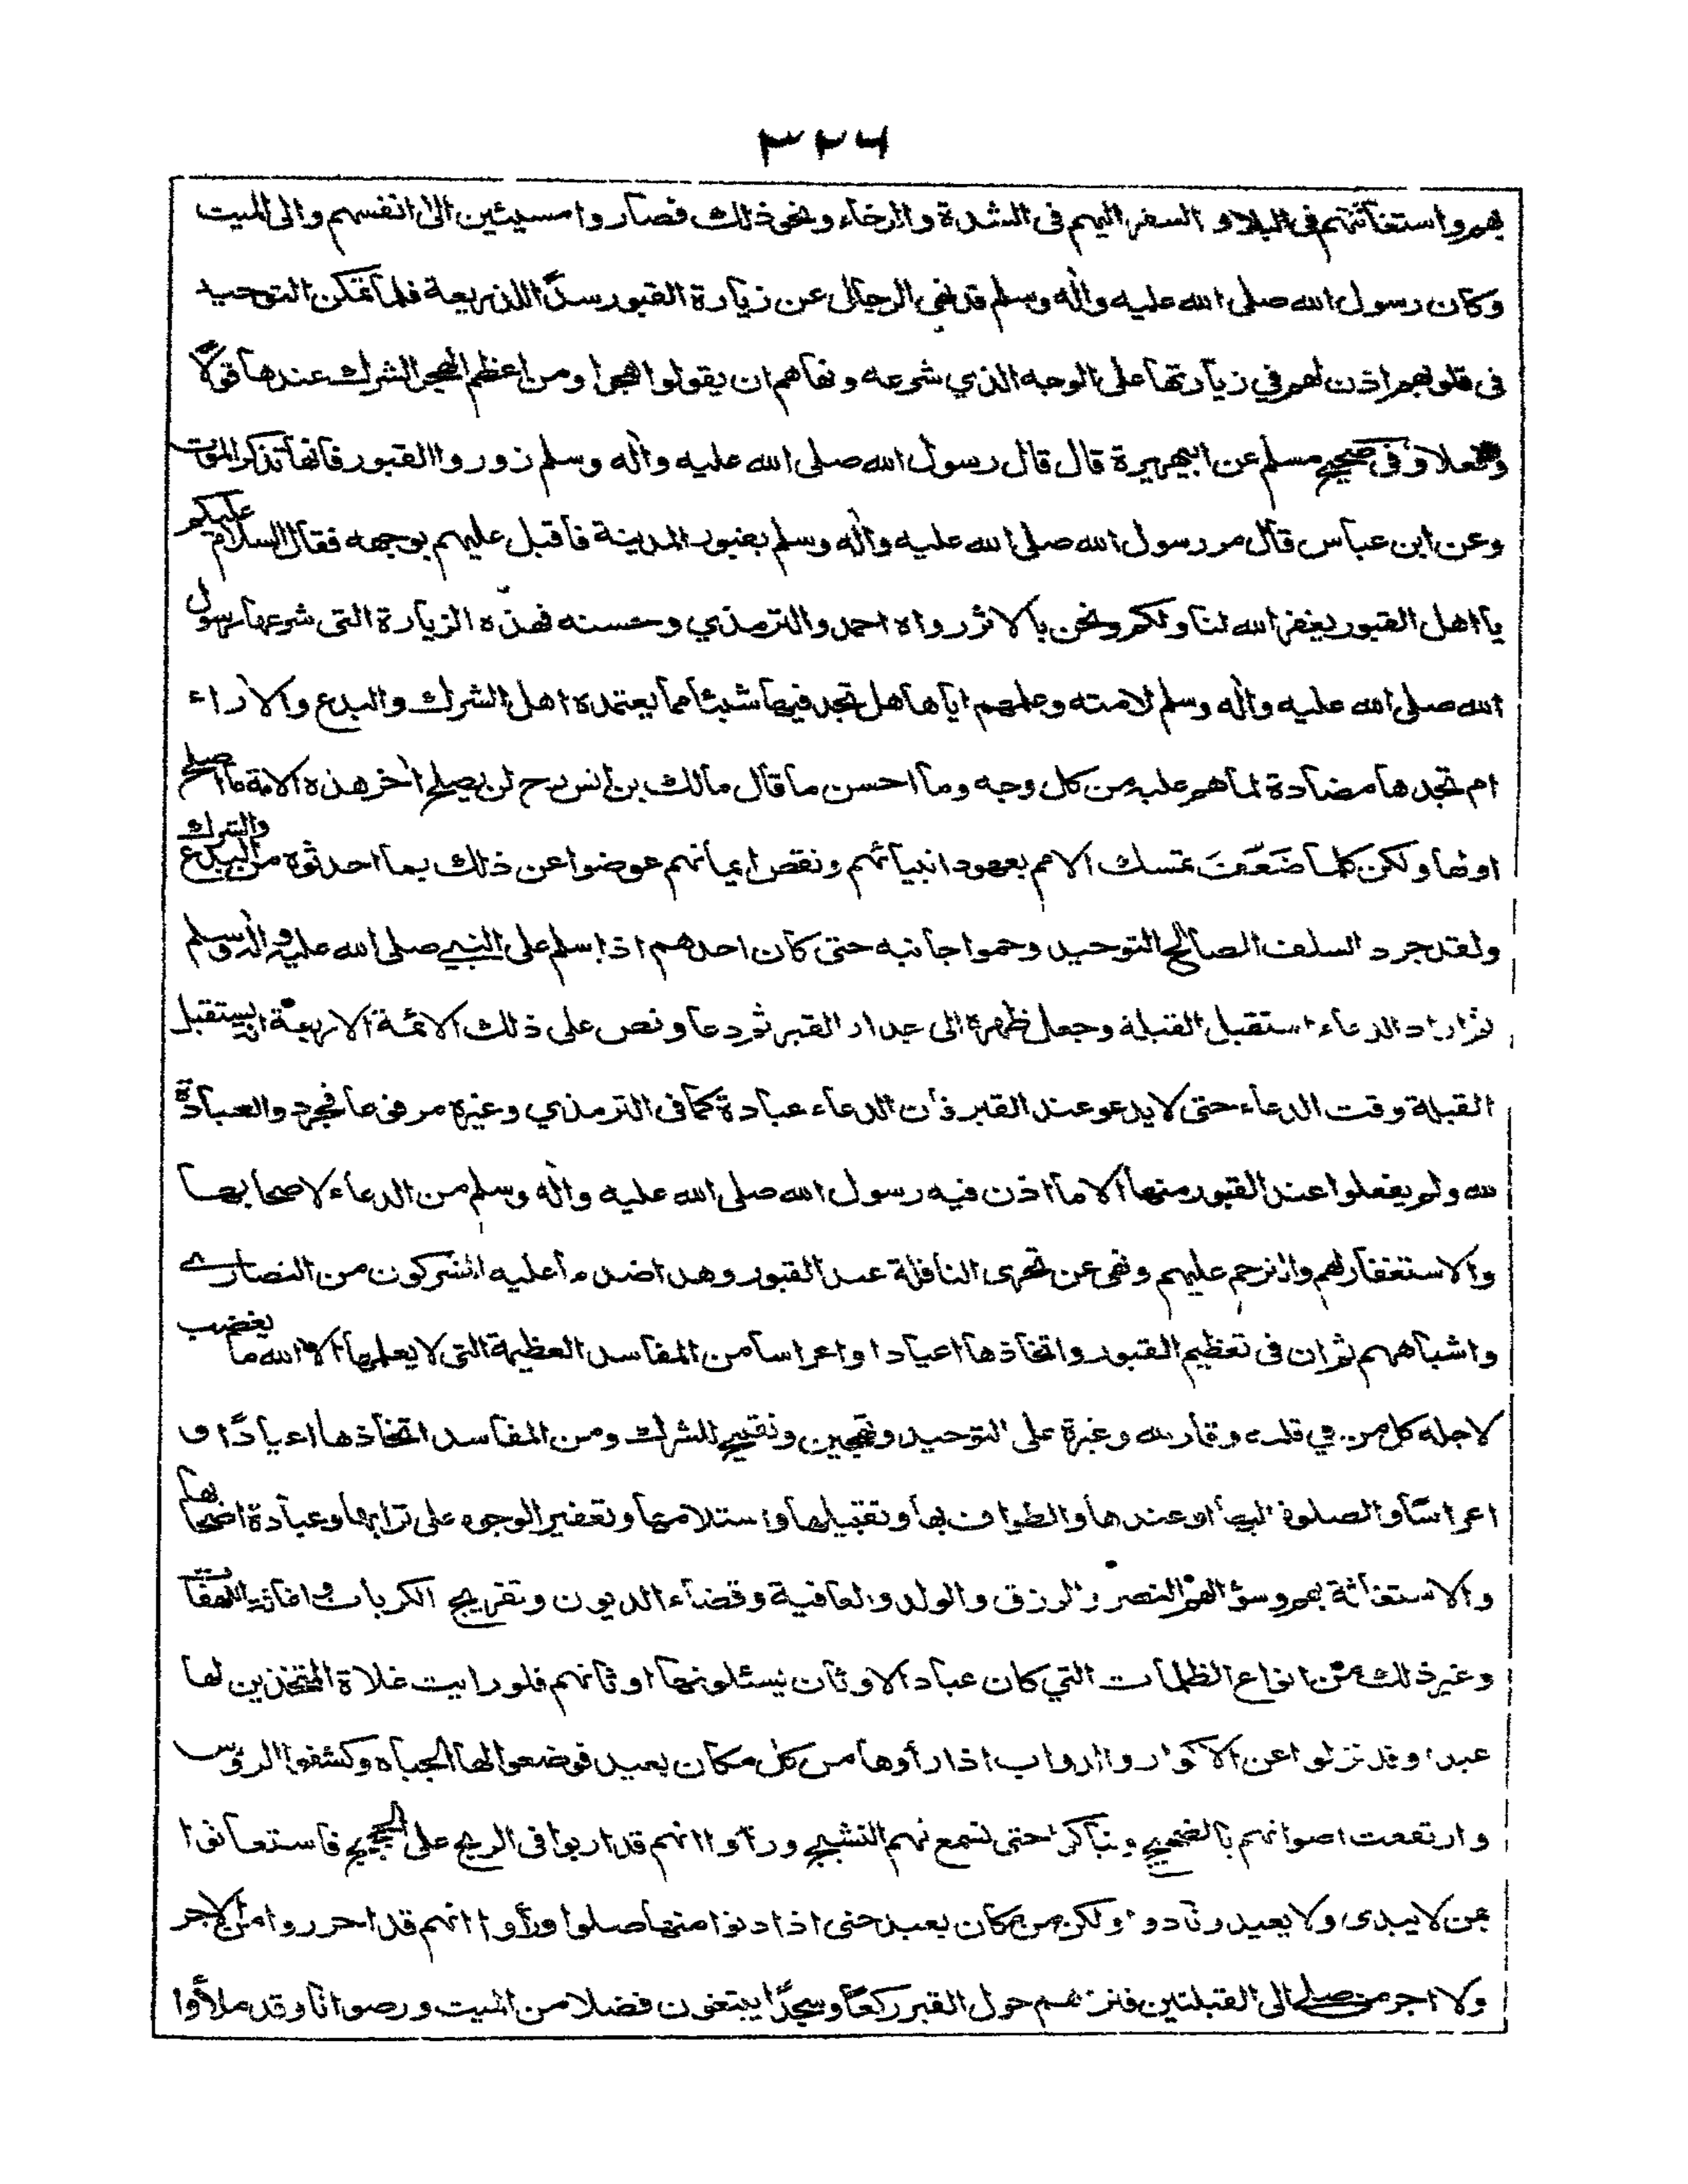 ٣٢٦
بهم واستغاثتهم فى البلاد و السفر اليهم فى الشدة والرخاء ونحو ذلك فصاروا مسيئين الى انفسهم والى الميت
وكان رسول الله صلى الله عليه واٰله وسلم قد نهى الرجال عن زيارة القبور سدًّا للذريعة فلما تمكن التوحيد
فى قلوبهم اذن لهم في زيارتها على الوجه الذي شرعه ونهاهم ان يقولوا هجرا ومن اعظم الهجر الشرك عندها قولًا
وفعلا وفى صحيح مسلم عن ابيهريرة قال قال رسول الله صلى الله عليه واٰله وسلم زوروا القبور فانها تذكر الموت
وعن ابن عباس قال مر رسول الله صلى الله عليه واٰله وسلم بقبور المدينة فاقبل عليهم بوجهه فقال السلام عليكم
يا اهل القبور يغفر الله لنا ولكم ونحن بالاثر رواه احمد والترمذي وحسنه فهذه الزيارة التى شرعها رسول
الله صلى الله عليه واٰله وسلم لامته وعلمهم اياها هل تجد فيها شيئا مما يعتمده اهل الشرك والبدع والاراء
ام تجدها مضادة لما هم عليه من كل وجه وما احسن ما قال مالك بن انس رح لن يصلح اٰخر هذه الامة ما اصلح
اولها ولكن كلما ضَعَفَتَ تمسك الامم بعهود انبيائهم ونقص ايمانهم عوضوا عن ذلك بما احدثوه من البدع والشرك
ولقد جرد السلف الصالح التوحيد وحموا جانبه حتى كان احدهم اذا سلم على النبي صلى الله عليه واٰله وسلم
ثم اراد الدعاء استقبل القبلة وجعل ظهره الى جدار القبر ثم دعا ونص على ذلك الائمة الاربعة انه يستقبل
القبلة وقت الدعاء حتى لا يدعو عند القبر فان الدعاء عبادة كما فى الترمذي وغيره مرفوعا فجرد والعبادة
لله ولم يفعلوا عند القبور منها الا ما اذن فيه رسول الله صلى الله عليه واٰله وسلم من الدعاء لاصحابها
والاستغفار لهم والترحم عليهم ونهى عن تحرى النافلة عند القبور وهذا ضد ما عليه المشركون من النصارے
واشباههم ثم ان فى تعظيم القبور واتخاذها اعيادا واعراسا من المفاسد العظيمة التى لا يعلمها الا الله ما يغضب
لاجله كل من في قلبه وقار لله وغيرة على التوحيد وتهجين وتقبيح للشرك ومن المفاسد اتخاذها اعيادًا و
اعراسًا والصلوة اليها او عندها والطواف بها وتقبيلها واستلامها وتعفير الوجوه على ترابها وعبادة اصحابها
والاستغاثة بهم وسؤالهم النصر والرزق والولد والعافية وقضاء الديون وتفريج الكربات واغاثة اللهفات
وغير ذلك من انواع الظلمات التي كان عباد الاوثان يسئلونها اوثانهم فلو رايت غلاة المتخذين لها
عيدا وقد نزلوا عن الاكوار والدواب اذا رأوها من كل مكان بعيد فوضعوا لها الجباه وكشفوا الرؤس
وارتفعت اصواتهم بالضجيج وتباكوا حتى تسمع لهم النشيج ورأوا انهم قد اربوا فى الربح على الحجيج فاستعانوا
بمن لا يبدى ولا يعيد ونادوا ولكن من مكان بعيد حتى اذا دنوا منها صلوا ورأوا انهم قد احرزوا من الاجر
ولا اجر من صلے الى القبلتين فتراهم حول القبر ركعًا وسجدًا يبتغون فضلا من الميت ورضوانا وقد ملأوا